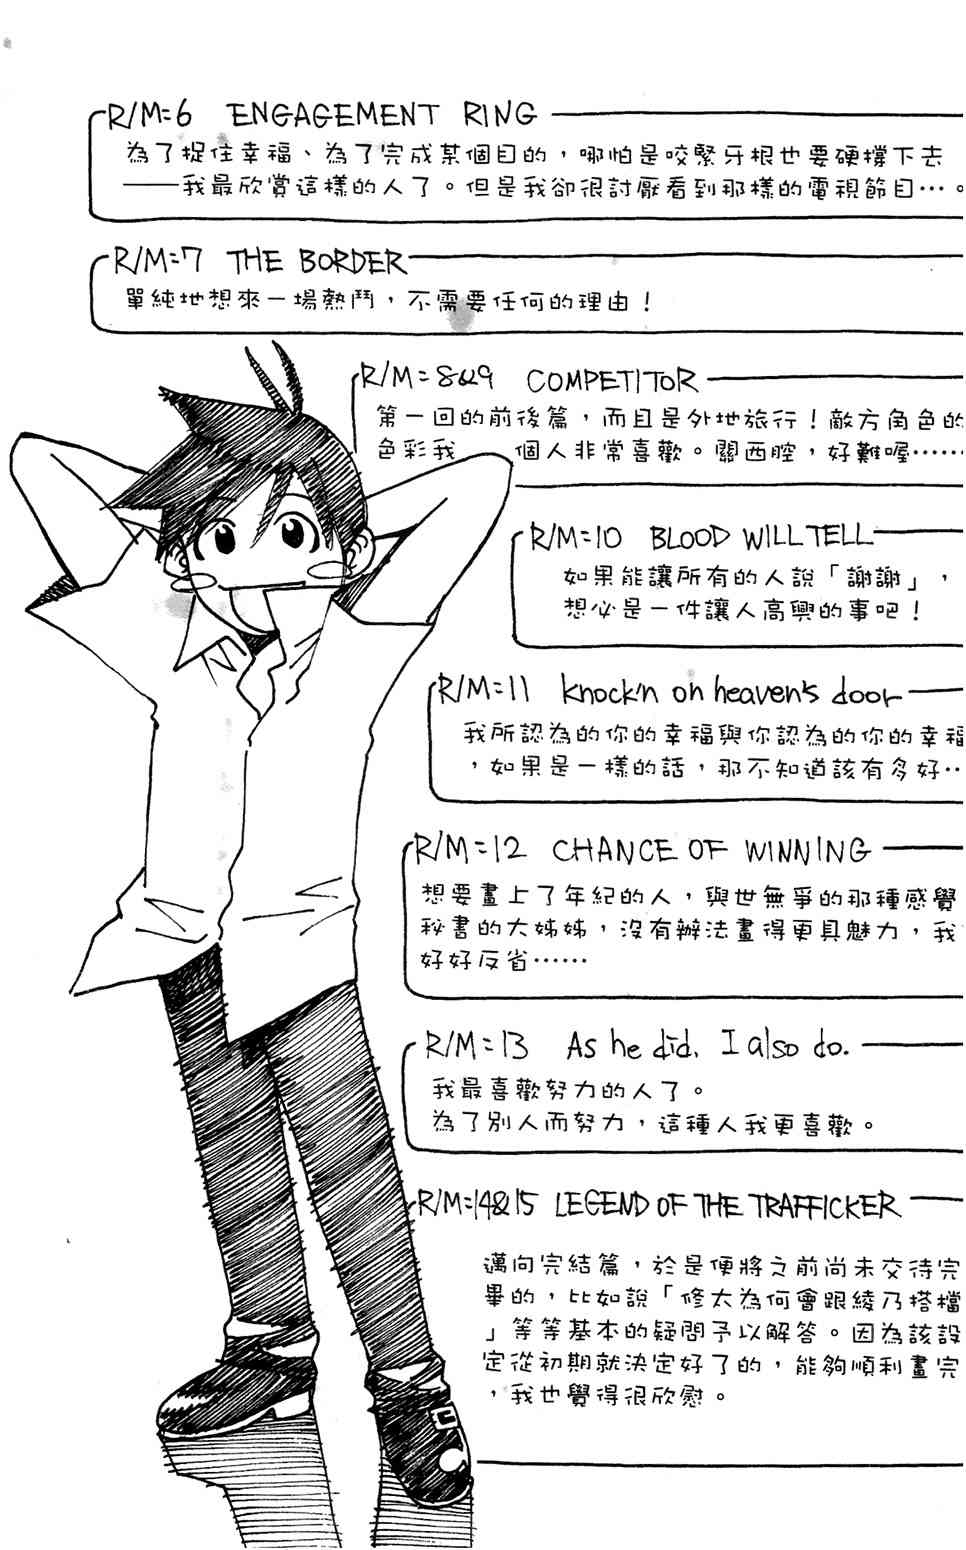 R/M=6 ENGAGEMENT RING
為了捉住幸福、為了完成某個目的，哪怕是咬緊牙根也要硬撐下去
——我最欣賞這樣的人了。但是我卻很討厭看到那樣的電視節目…。
R/M=7 THE BORDER
單純地想來一場熱鬥，不需要任何的理由！
R/M=8&9 COMPETITOR
第一回的前後篇，而且是外地旅行！敵方角色的
色彩我 個人非常喜歡。關西腔，好難喔……
R/M=10 BLOOD WILL TELL
如果能讓所有的人說「謝謝」，
想必是一件讓人高興的事吧！
R/M=11 knock'n on heaven's door
我所認為的你的幸福與你認為的你的幸福
，如果是一樣的話，那不知道該有多好…
R/M=12 CHANCE OF WINNING
想要畫上了年紀的人，與世無爭的那種感覺
秘書的大姊姊，沒有辦法畫得更具魅力，我
好好反省……
R/M=13 As he did, I also do.
我最喜歡努力的人了。
為了別人而努力，這種人我更喜歡。
R/M=14&15 LEGEND OF THE TRAFFICKER
邁向完結篇，於是便將之前尚未交待完
畢的，比如說「修太為何會跟綾乃搭檔
」等等基本的疑問予以解答。因為該設
定從初期就決定好了的，能夠順利畫完
，我也覺得很欣慰。